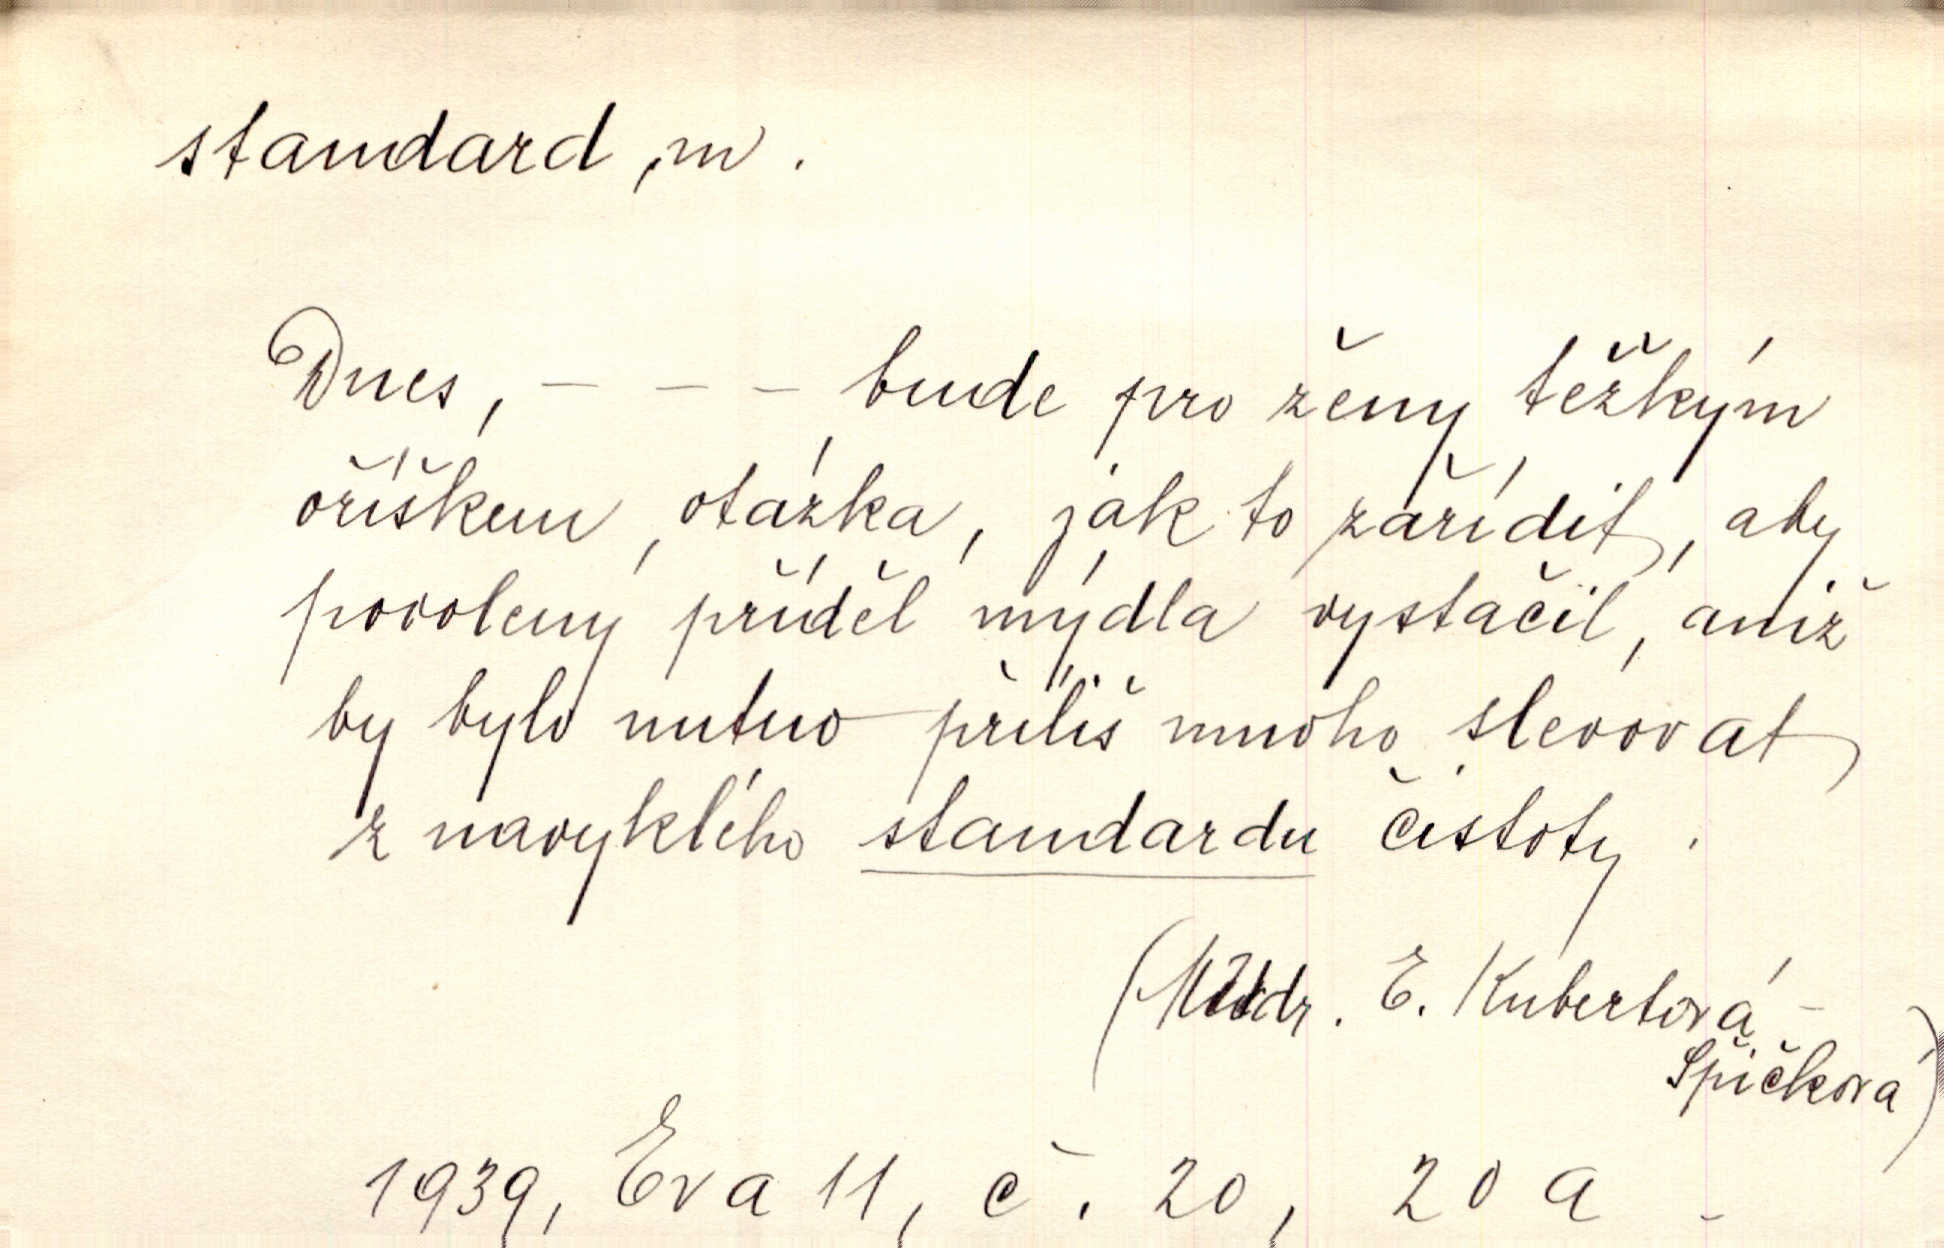 standard, m.
Dnes, - - - bude pro ženy těžkým
oříškem, otázka, jak to zařídit, aby
povolený příděl mýdla vystačil, aniž
by bylo nutno příliš mnoho slevovat
z navyklého standardu čistoty.
(Mudr. E. Kubertová -
Špičková)
1939, Eva 11, č. 20, 20 a -